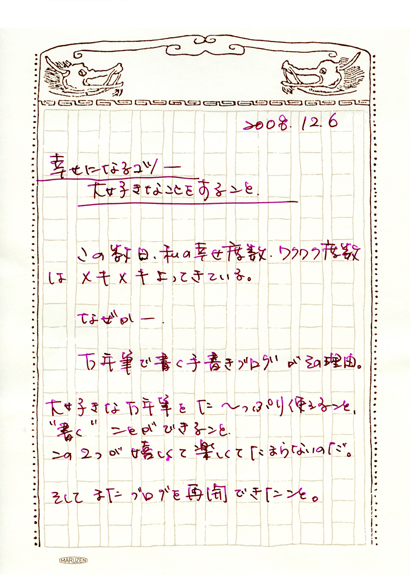 2008.12.6
幸せになるコツ―
大好きなことをすること.
この数日、私の幸せ度数、ワクワク度数
は メキメキ よってきている。
なぜか―
万年筆で書く手書きブログがその理由。
大好きな万年筆をた〜っぷり使えること、
"書く" ことができること.
この2つが嬉しくて楽しくてたまらないのだ。
そしてまたブログを再開できたこと。
MARUZEN